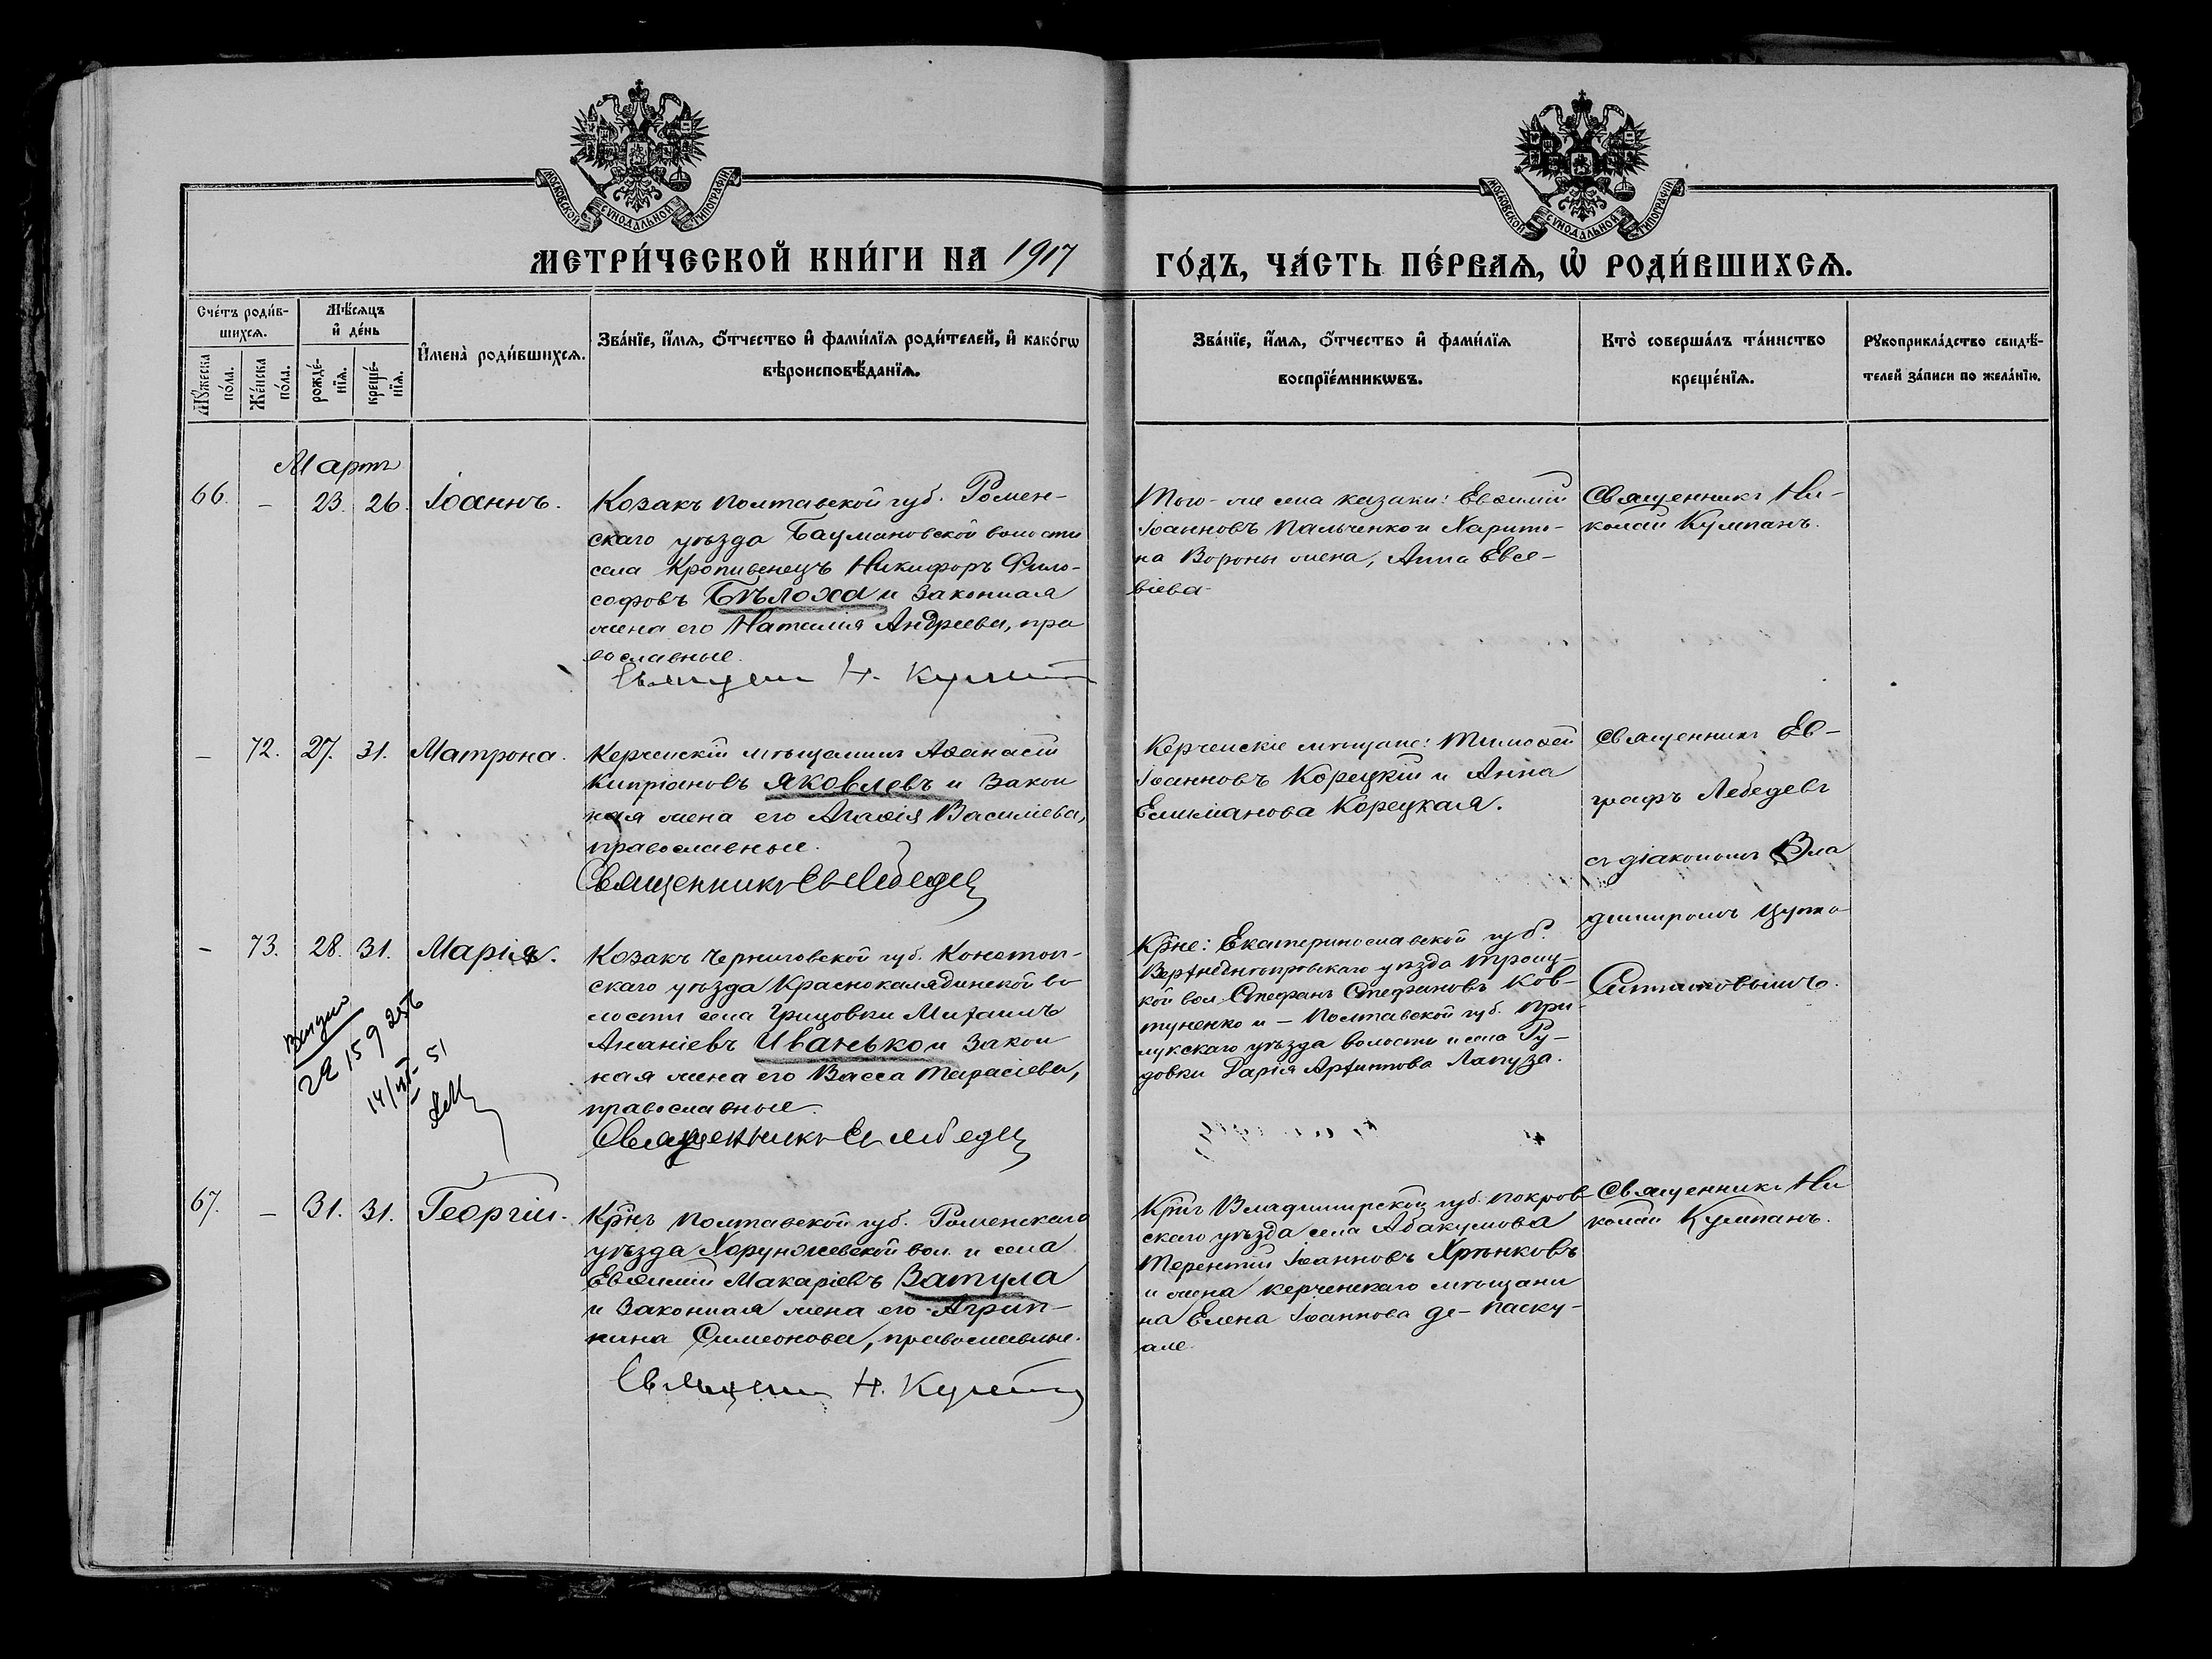 МОСКОВСКОЙ СУНОДАЛЬНОЙ ТИПОГРАФІИ
МОСКОВСКОЙ СУНОДАЛЬНОЙ ТИПОГРАФІИ
МЕТРИ́ЧЕСКОЙ КНИ́ГИ НА 1917
ГО́ДЪ, ЧА́СТЬ ПЕ́РВАѦ, Ѡ҆ РОДИ́ВШИХСѦ.
Сче́тъ роди́в-
шихсѧ.
Мꙋ́жеска
по́ла.
Же́нска
по́ла.
Мѣ́сѧцъ
и҆ де́нь
рожде́-
нїѧ.
креще́-
нїѧ.
И҆мена̀ роди́вшихсѧ.
Зва́нїе, и҆́мѧ, ѻ҆́тчество и҆ фами́лїѧ роди́телей, и҆ како́гѡ
вѣроисповѣ́данїѧ.
Зва́нїе, и҆́мѧ, ѻ҆́тчество и҆ фами́лїѧ
воспрїе́мникѡвъ.
Кто̀ соверша́лъ та́инство
креще́нїѧ.
Рꙋкоприкла́дство свидѣ́-
телей за́писи по жела́нїю.
Мартъ
66. – 23. 26. Іоаннъ.
Козакъ Полтавской губ. Ромен-
скаго уѣзда Баумановской волости
села Кропивенецъ Никифоръ Фило-
софовъ Бѣлоха и законная
жена его Наталія Андреева, пра
вославные.
Священ Н. Кумпан
Того-же села казаки: Евѳимій
Іоанновъ Пальченко и Харито-
на Вороны жена, Анна Евсе-
віева
Священникъ Ни-
колай Кумпанъ.
– 72. 27. 31. Матрона.
Керченскій мѣщанинъ Аѳанасій
Кипріановъ Яковлевъ и закон
ная жена его Агаѳія Василіева,
православные.
Священникъ Ев Лебедев
Керченскіе мѣщане: Тимоѳей
Іоанновъ Корецкій и Анна
Корецкая.
Священникъ Ев-
графъ Лебедевъ
съ діакономъ Вла
димиромъ
– 73. 28. 31. Марія.
Козакъ Черниговской губ. Конотоп-
скаго уѣзда Краснокалядинской во
лости села Грицовки Михаилъ
Ананіевъ Иванько и закон
ная жена его Васса Тарасіева,
православные.
Священникъ Ев Лебедев
Крне: Екатеринославской губ.
Верхнеднѣпровскаго уѣзда Троиц-
кой вол. Стефанъ Стефановъ Ков-
туненко и – Полтавской губ. При-
лукскаго уѣзда волости и села Ру-
довки Дарія Архиппова Лапуза.
Выдано
67. – 31. 31. Георгій.
Крнъ Полтавской губ. Роменскаго
уѣзда Хоружевской вол. и села
Евѳимій Макаріевъ Ватула
и законная жена его Агрип-
пина Симеонова, православные.
Священ Н. Кумпан
Крнъ Владимирской губ. Покров
скаго уѣзда села Абакумова
Терентій Іоанновъ Хрѣнковъ
и жена керченскаго мѣщани
на Елена Іоаннова де-Паску-
але.
Священникъ Ни
колай Кумпанъ.